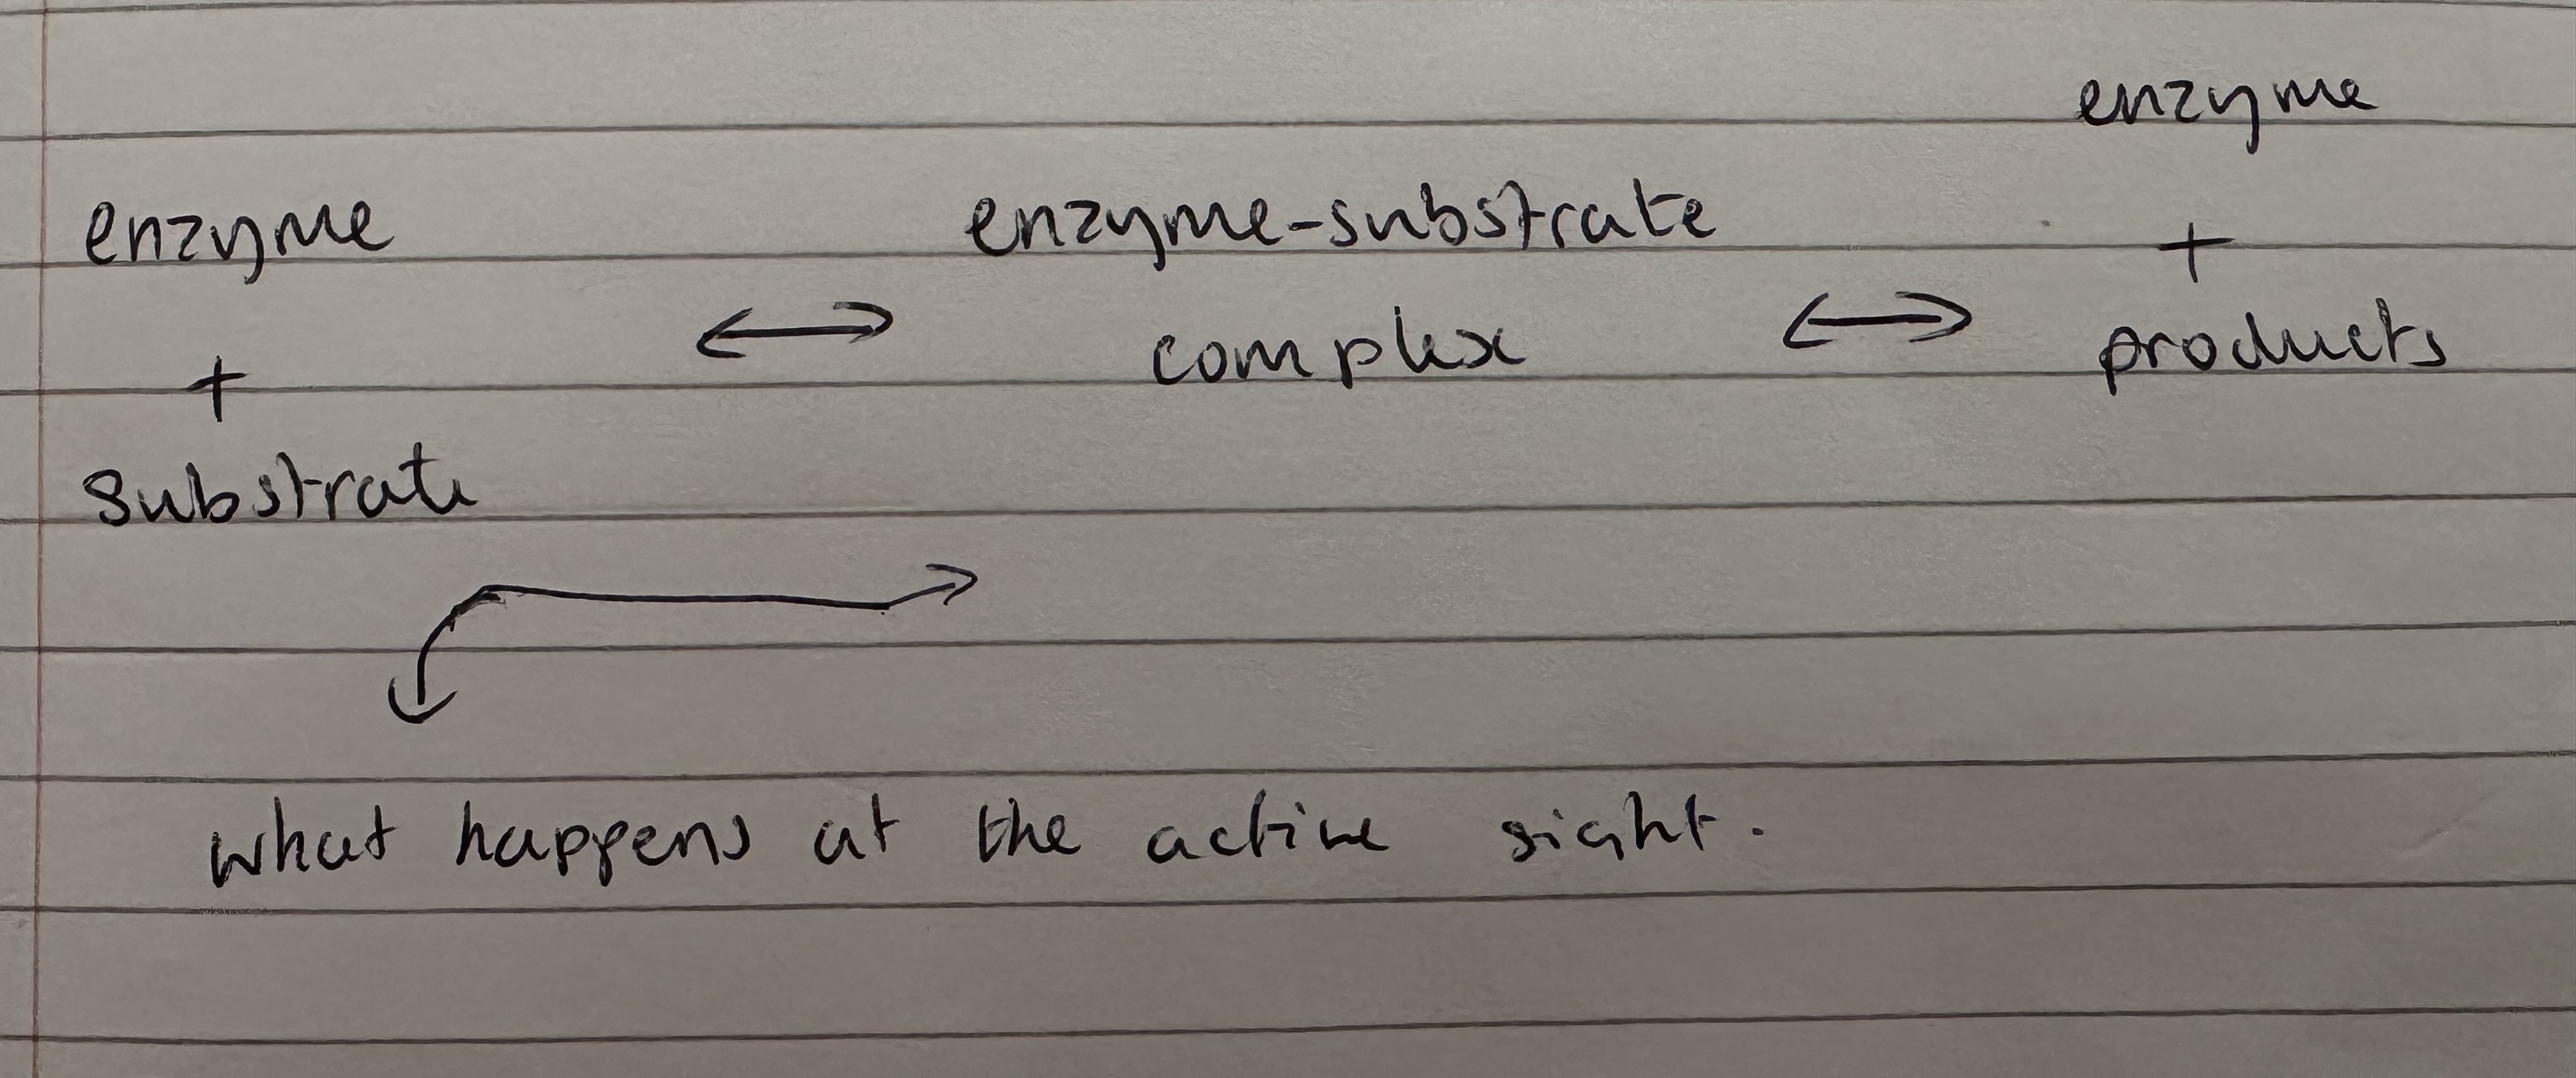 enzyme
enzyme
+
enzyme-substrate
+
complex
products
substrate
what happens at the active sight.